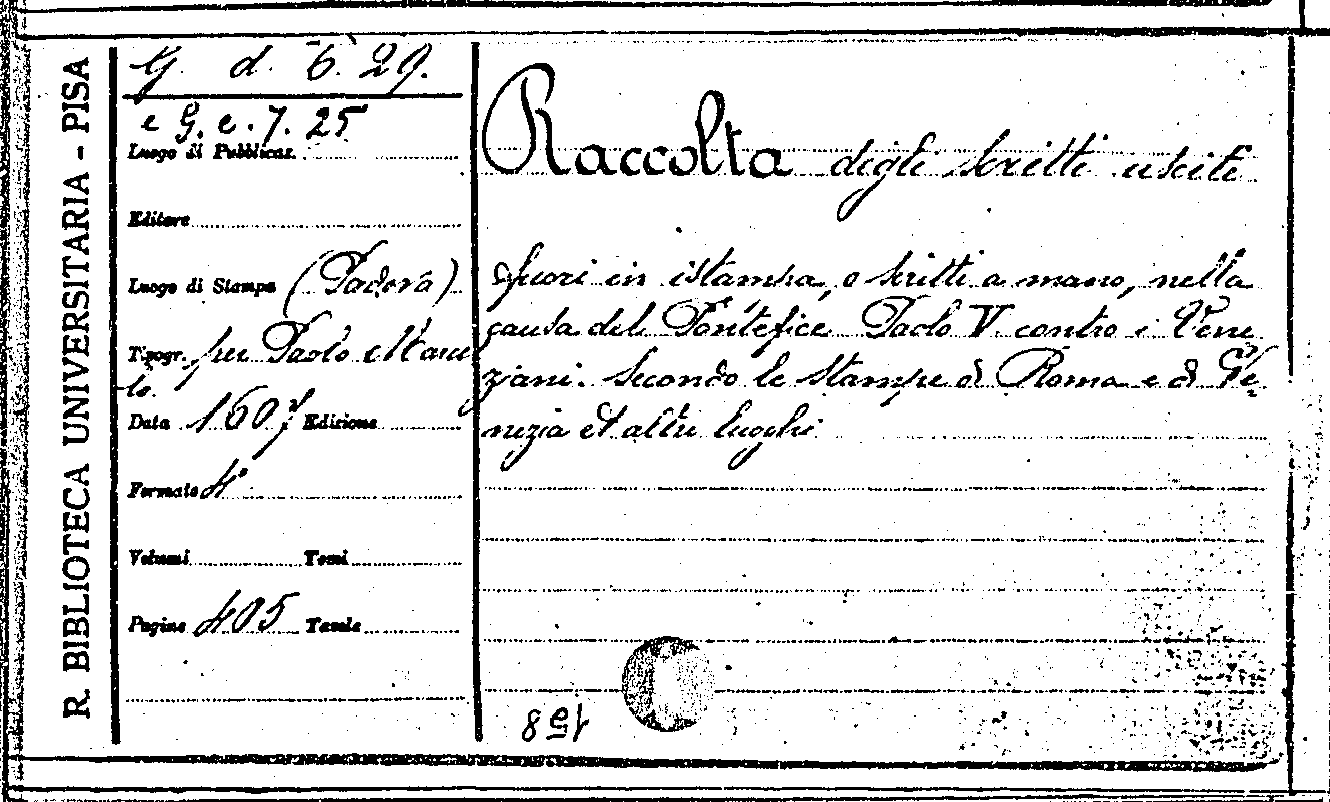 R. BIBLIOTECA UNIVERSITARIA - PISA
G. d. 6. 29.
e G. e. 7. 25
Luogo di Pubblicaz.
Editore
Luogo di Stampa (Padova)
Tipogr. per Paolo Marcel
lo.
Data 1607 Edizione
Formato 4°
Volumi Tomi
Pagine 405 Tavole
Raccolta degli scritti usciti
fuori in istampa, e scritti a mano, nella
causa del Pontefice Paolo V. contro i Vene
ziani. Secondo le stampe di Roma e di Ve-
nezia et altri luoghi
158